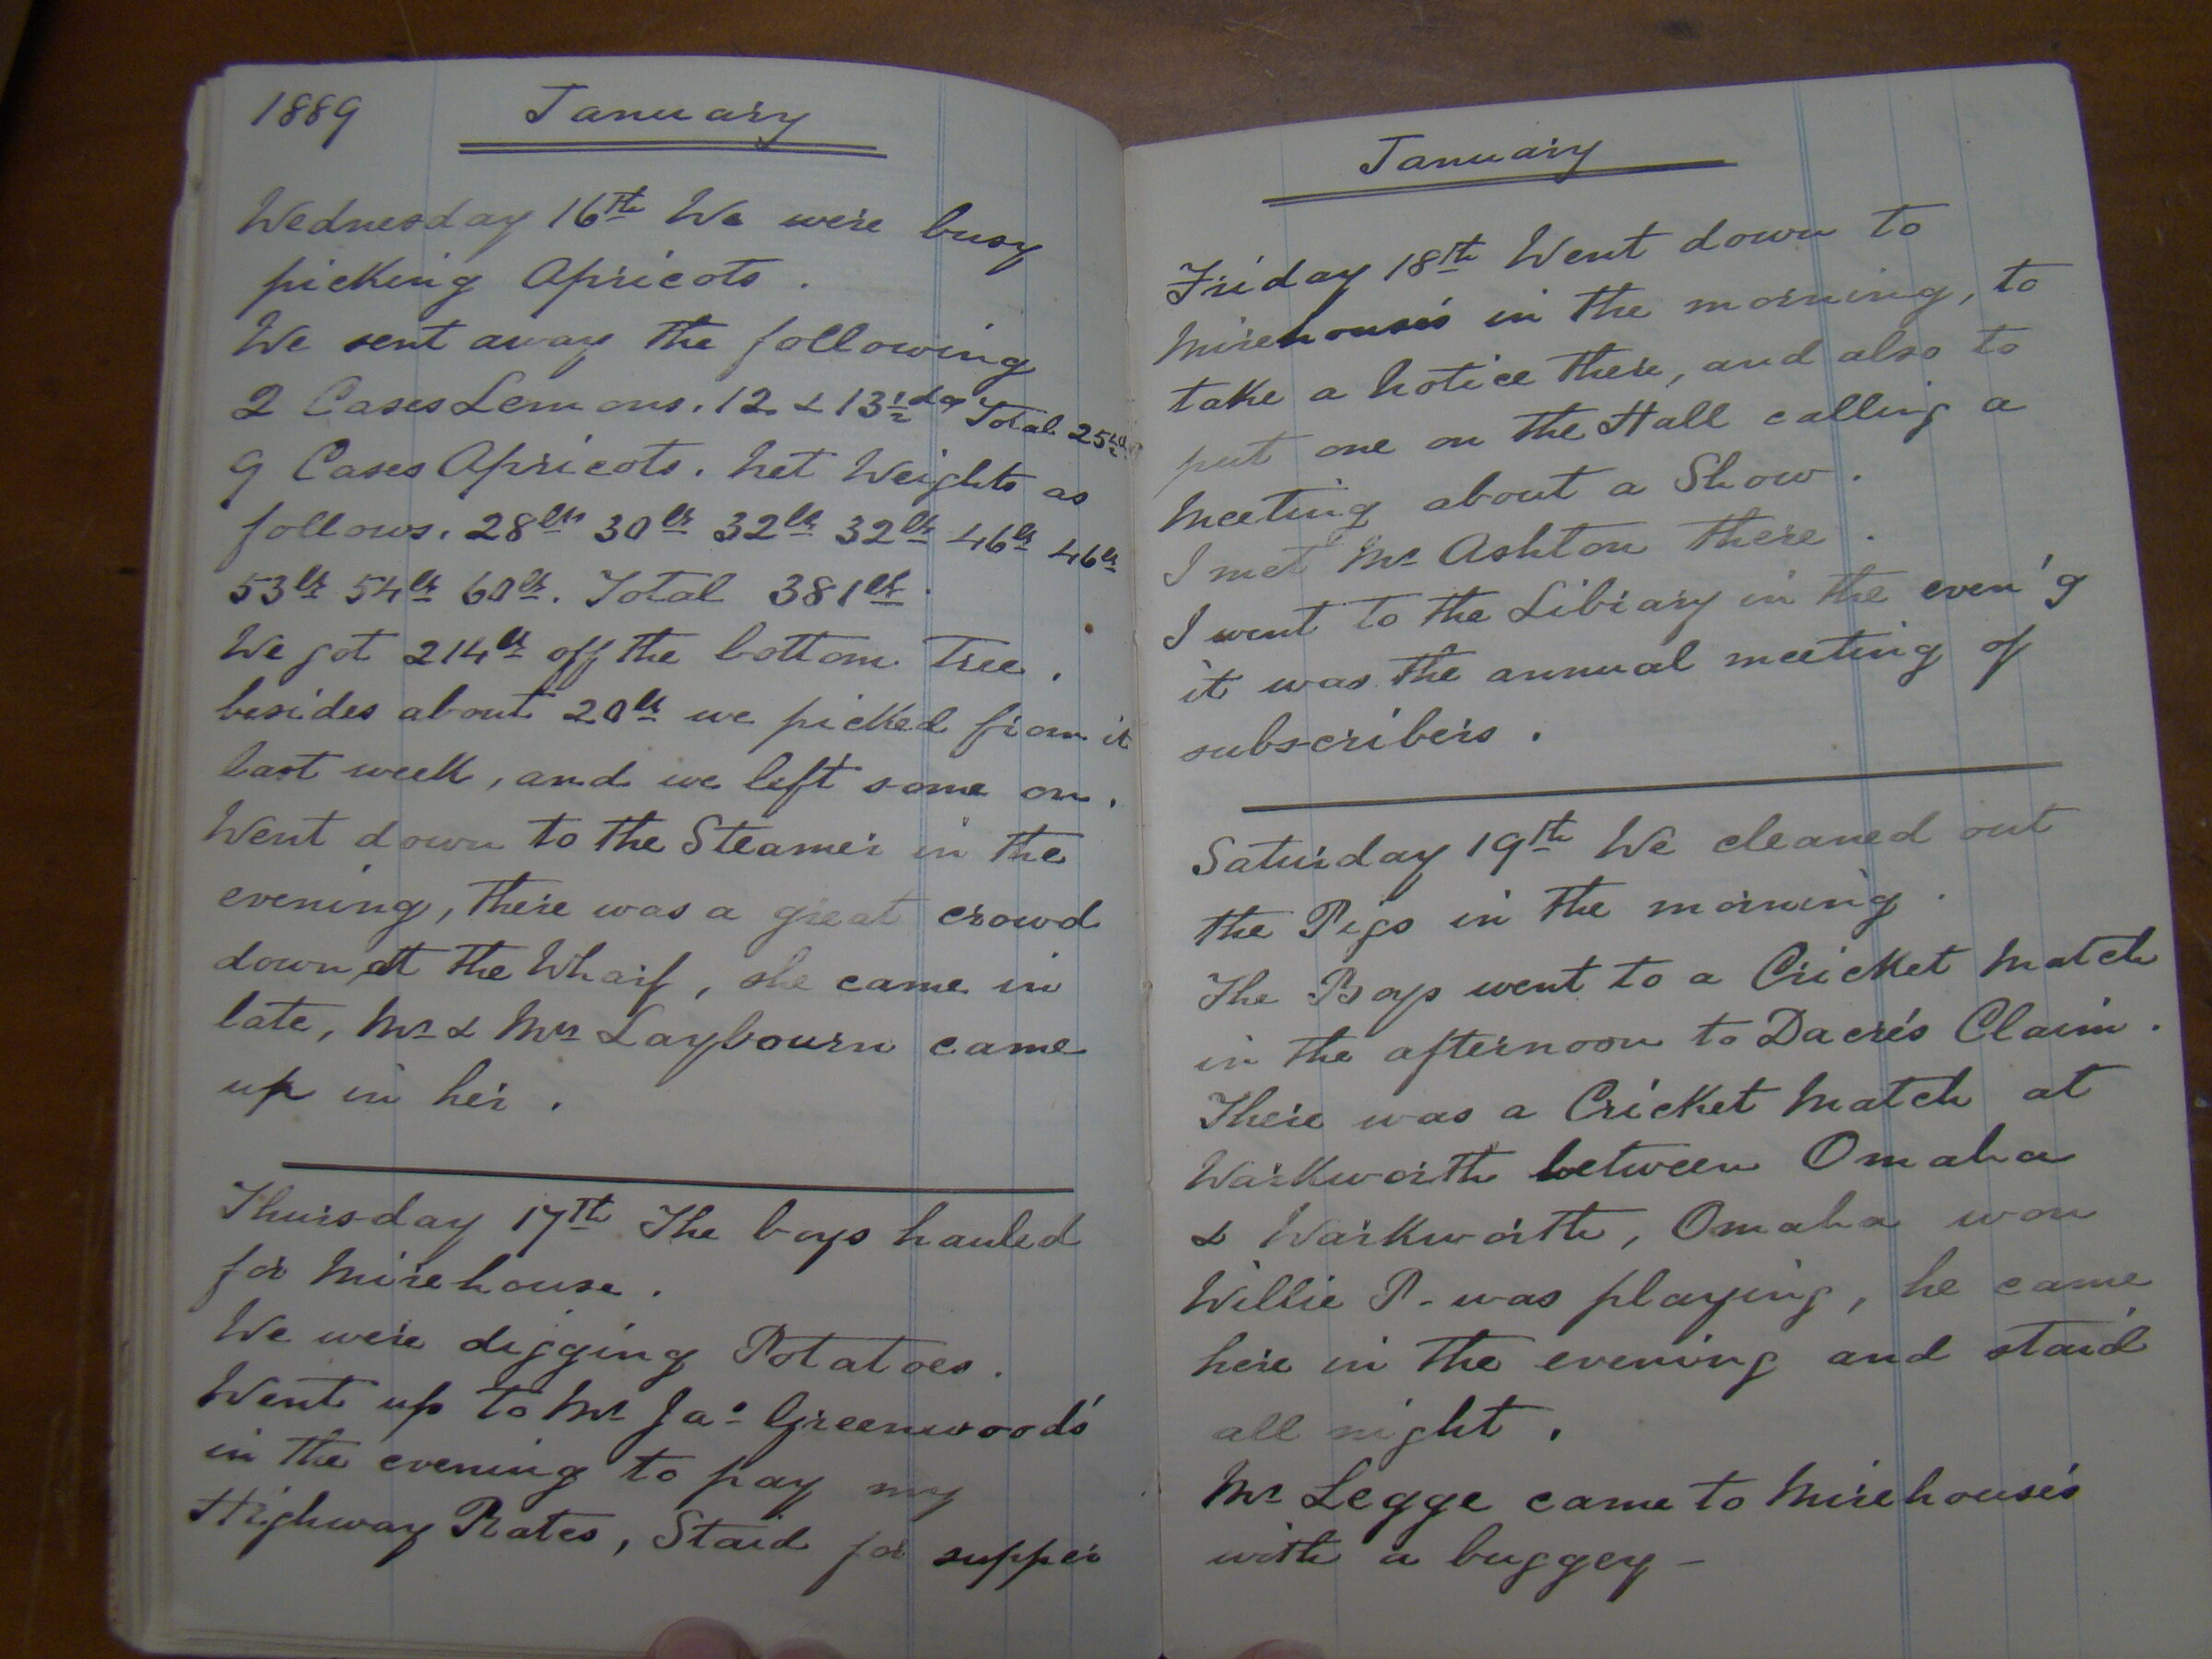 1889 January
Wednesday 16th We were busy
picking Apricots.
We sent away the following
2 Cases Lemons. 12 & 13½ doz Total 25½ doz
9 Cases Apricots. Net Weights as
follows. 28lbs 30lb 32lb 32lb 46lb 46lb
53lb 54lb 60lb. Total 381lb.
We got 214lb off the bottom Tree,
besides about 20lb we picked from it
last week, and we left some on.
Went down to the Steamer in the
evening, there was a great crowd
down at the Wharf, she came in
late, Mr & Mrs Laybourn came
up in her.
Thursday 17th The boys hauled
for Mirehouse.
We were digging Potatoes.
Went up to Mr Jas Greenwoods'
in the evening to pay my
Highway Rates, Staid for supper
January
Friday 18th Went down to
Mirehouse's in the morning, to
take a Notice there, and also to
put one on the Hall calling a
Meeting about a Show.
I met Mr Ashton there.
I went to the Library in the even'g
it was the annual meeting of
subscribers.
Saturday 19th We cleaned out
the Pigs in the morning.
The Boys went to a Cricket Match
in the afternoon to Dacre's Claim.
There was a Cricket Match at
Warkworth between Omaha
& Warkworth, Omaha won
Willie P. was playing, he came
here in the evening and staid
all night.
Mr Legge came to Mirehouse's
with a buggey -